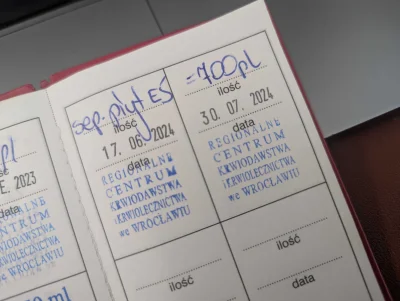 pl
E. 2023
data
REGIONALNE
CENTRUM
KRWIODAWSTWA
I KRWIOLECZNICTWA
we WROCŁAWIU
ml
sep. płyt EŚ
ilość
17. 06. 2024
data
REGIONALNE
CENTRUM
KRWIODAWSTWA
I KRWIOLECZNICTWA
we WROCŁAWIU
ilość
data
=700pl
ilość
30. 07. 2024
data
REGIONALNE
CENTRUM
KRWIODAWSTWA
I KRWIOLECZNICTWA
we WROCŁAWIU
ilość
data